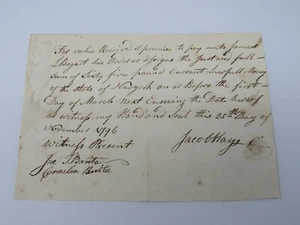 For value Received I promise to pay unto James
J Bogart his Exors or assigns the Just and full
Sum of Sixty five pound Current Lawfull Money
of the State of Newyork on or Before the first
Day of March next Ensuing the Date hereof
as witness my Hand and Seal this 25th Day of
November 1796
Witness Present
Jacob Hays
Cornelia Banta